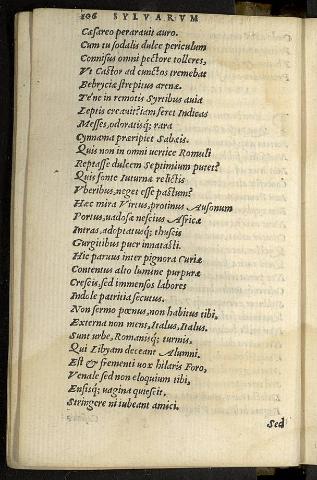 106 SYLVARVM
Cæsareo perarauit auro.
Cum tu sodalis dulce periculum
Connisus omni pectore tolleres,
Vt Castor ad cunctos tremebat
Bebryciæ strepitus arenæ.
Te'ne in remotis Syrtibus auia
Leptis creauit? iam feret Indicas
Messes, odoratisq; rara
Cynnama præripiet Sabæis.
Quis non in omni uertice Romuli
Reptasse dulcem Septimium putet?
Quis fonte Iuturnæ relictis
Vberibus, neget esse pastum?
Hæc mira Virtus, protinus Ausonum
Portus, uadosæ nescius Africæ
Intras, adoptatusq; thuscis
Gurgitibus puer innatasti.
Hic paruus inter pignora Curiæ
Contentus alto lumine purpuræ
Crescis, sed immensos labores
Indole patritia secutus.
Non sermo pœnus, non habitus tibi,
Externa non mens, Italus, Italus.
Sunt urbe, Romanisq; turmis,
Qui Libyam deceant Alumni.
Est & frementi uox hilaris Foro,
Venale sed non eloquium tibi,
Ensisq; uagina quiescit,
Stringere ni iubeant amici.
Sed